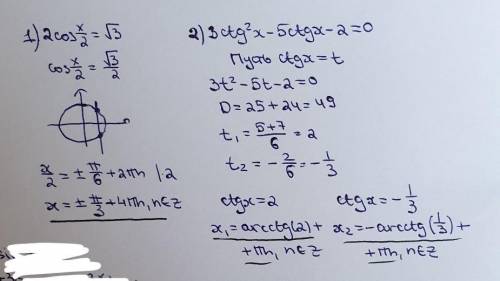 1) 2cos x/2 = √3
cos x/2 = √3/2
x/2 = ± π/6 + 2πn |·2
x = ± π/3 + 4πn, n∈Z
2) 3ctg²x - 5ctgx - 2 = 0
Пусть ctgx = t
3t² - 5t - 2 = 0
D = 25 + 24 = 49
t₁ = (5+7)/6 = 2
t₂ = -2/6 = -1/3
ctgx = 2
x₁ = arcctg(2) +
+πn, n∈Z
ctgx = -1/3
x₂ = -arcctg(1/3) +
+πn, n∈Z